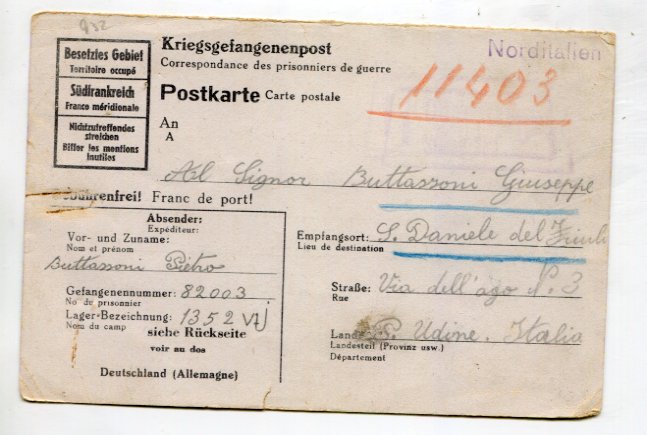 932
Besetztes Gebiet
Territoire occupé
Südfrankreich
France méridionale
Nichtzutreffendes
streichen
Biffer les mentions
inutiles
Kriegsgefangenenpost
Correspondance des prisonniers de guerre
Norditalien
Postkarte Carte postale
11403
An
A
Al Signor Buttassoni Giuseppe
Gebührenfrei! Franc de port!
Absender:
Expéditeur:
Vor- und Zuname:
Nom et prénom
Buttassoni Pietro
Gefangenennummer: 82003
No du prisonnier
Lager-Bezeichnung: 1352
Nom du camp
siehe Rückseite
voir au dos
Deutschland (Allemagne)
Empfangsort: S. Daniele del Friuli
Lieu de destination
Straße: Via dell'ago N. 3
Rue
Land: Udine. Italia
Landesteil (Provinz usw.)
Département